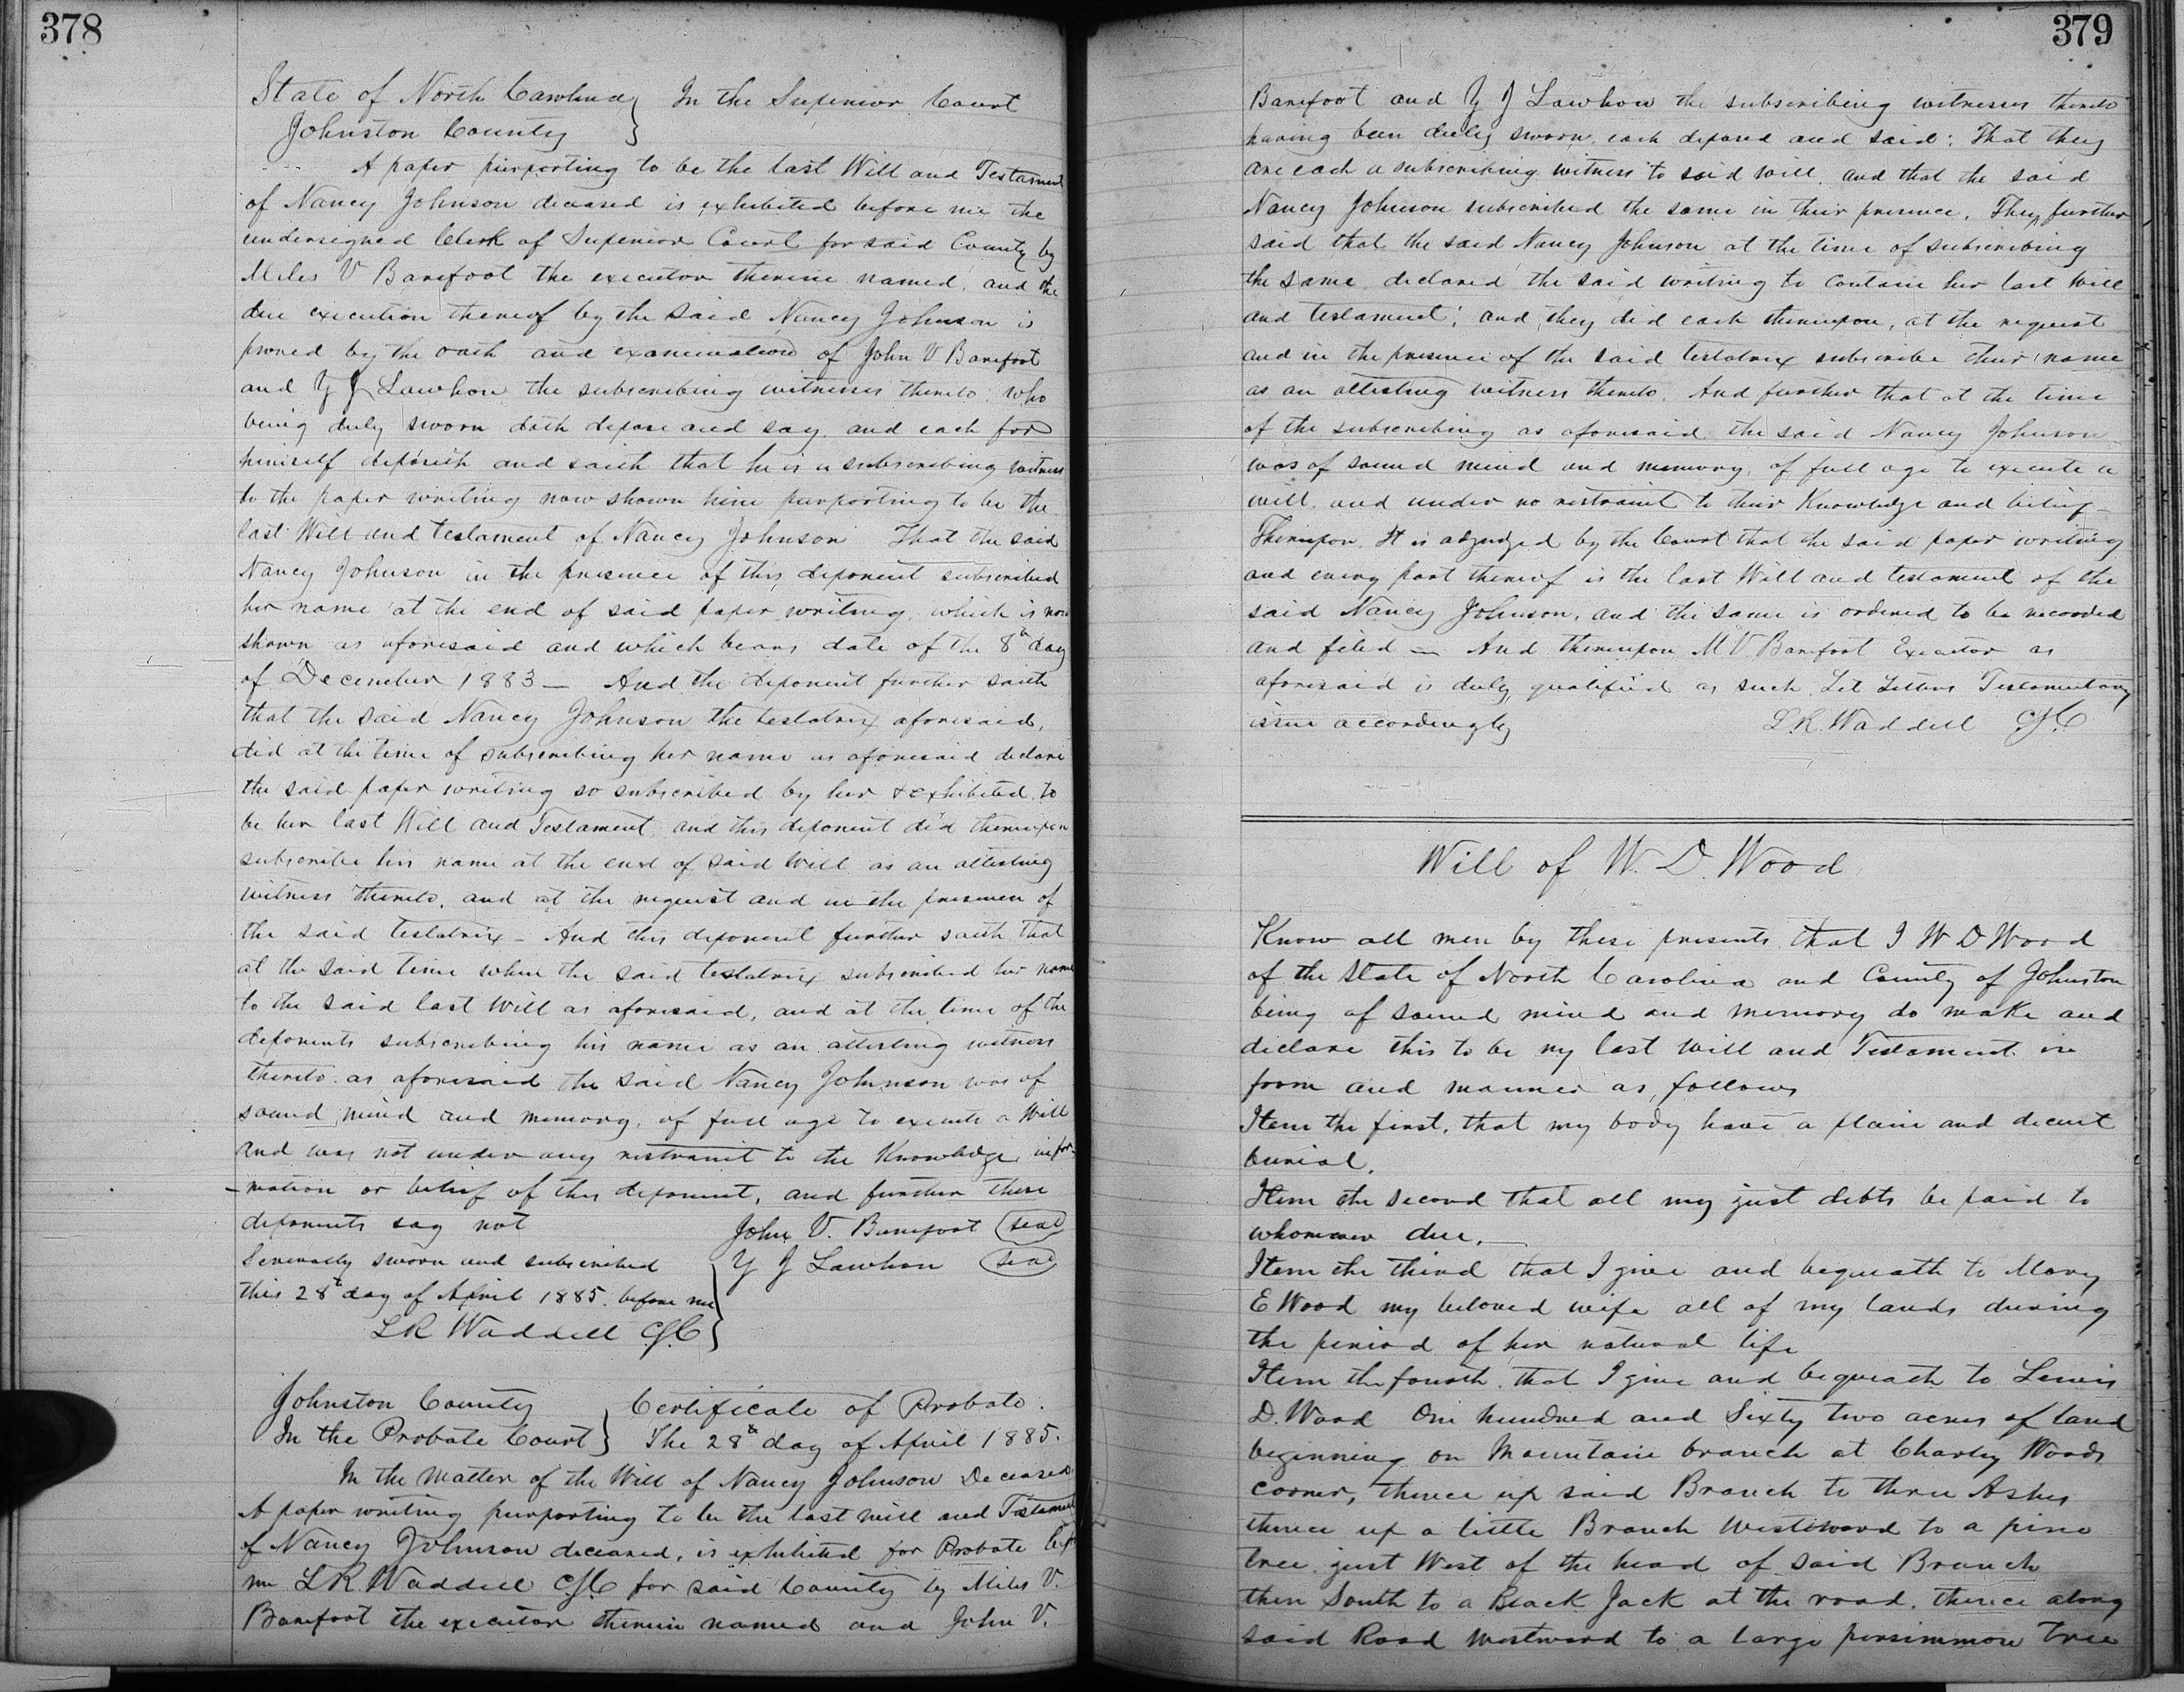 378
State of North Carolina } In the Superior Court
Johnston County }
A paper purporting to be the last Will and Testament
of Nancy Johnson deceased is exhibited before me the
undersigned Clerk of Superior Court for said County by
Miles V Barefoot the executor therein named, and the
due execution thereof by the said Nancy Johnson is
proved by the oath and examination of John V Barefoot
and Y J Lawhon the subscribing witnesses thereto. who
being duly sworn doth depose and say. and each for
himself deposeth and saith that he is a subscribing witness
to the paper writing now shown him purporting to be the
last Will and testament of Nancy Johnson That the said
Nancy Johnson in the presence of this deponent subscribed
her name at the end of said paper writing which is now
shown as aforesaid and which bears date of the 8th day
of December 1883 — And the deponent further saith
that the said Nancy Johnson the testatrix aforesaid,
did at the time of subscribing her name as aforesaid declare
the said paper writing so subscribed by her & exhibited to
be her last Will and Testament and this deponent did thereupon
subscribe his name at the end of said Will as an attesting
witness thereto, and at the request and in the presence of
the said testatrix - And this deponent further saith that
at the said time when the said testatrix subscribed her name
to the said last Will as aforesaid, and at the time of the
deponents subscribing his name as an attesting witness
thereto as aforesaid the said Nancy Johnson was of
sound mind and memory, of full age to execute a Will
and was not under any restraint to the Knowledge infor-
-mation or belief of this deponent, and further these
deponents say not John V. Barefoot (seal)
Severally sworn and subscribed } Y J Lawhon (seal)
this 28th day of April 1885. before me
L R Waddell CSC
Johnston County } Certificate of Probate.
In the Probate Court } The 28th day of April 1885.
In the Matter of the Will of Nancy Johnson Deceased
A paper writing purporting to be the last will and Testament
of Nancy Johnson deceased, is exhibited for Probate bef
me L R Waddell CSC for said County by Miles V.
Barefoot the executor therein named and John V.
379
Barefoot and Y J Lawhon the subscribing witnesses thereto
having been duly sworn, each deposed and said: That they
are each a subscribing witness to said will and that the said
Nancy Johnson subscribed the same in their presence. They further
said that the said Nancy Johnson at the time of subscribing
the same declared the said writing to contain her last will
and testament; and they did each thereupon, at the request
and in the presence of the said testatrix subscribe their name
as an attesting witness thereto. And further that at the time
of the subscribing as aforesaid the said Nancy Johnson
was of sound mind and memory, of full age to execute a
will and under no restraint to their Knowledge and belief -
Thereupon It is adjudged by the Court that the said paper writing
and every part thereof is the last Will and testament of the
said Nancy Johnson, and the same is ordered to be recorded
and filed — And thereupon M V Barefoot Executor as
aforesaid is duly qualified as such. Let Letters Testamentary
issue accordingly L.R. Waddell CSC
Will of W. D. Wood
Know all men by these presents that I W D Wood
of the State of North Carolina and County of Johnston
being of sound mind and memory do make and
declare this to be my last will and Testament in
form and manner as follows
Item the first, that my body have a plain and decent
burial.
Item the second that all my just debts be paid to
whomever due.
Item the third that I give and bequeath to Mary
E Wood my beloved wife all of my lands during
the period of her natural life
Item the fourth that I give and bequeath to Lewis
D. Wood One hundred and Sixty two acres of land
beginning on Mountain branch at Charley Woods
corner, thence up said Branch to three Ashes
thence up a little Branch westward to a pine
tree just West of the head of said Branch
then South to a Black Jack at the road, thence along
said Road westward to a large persimmon tree